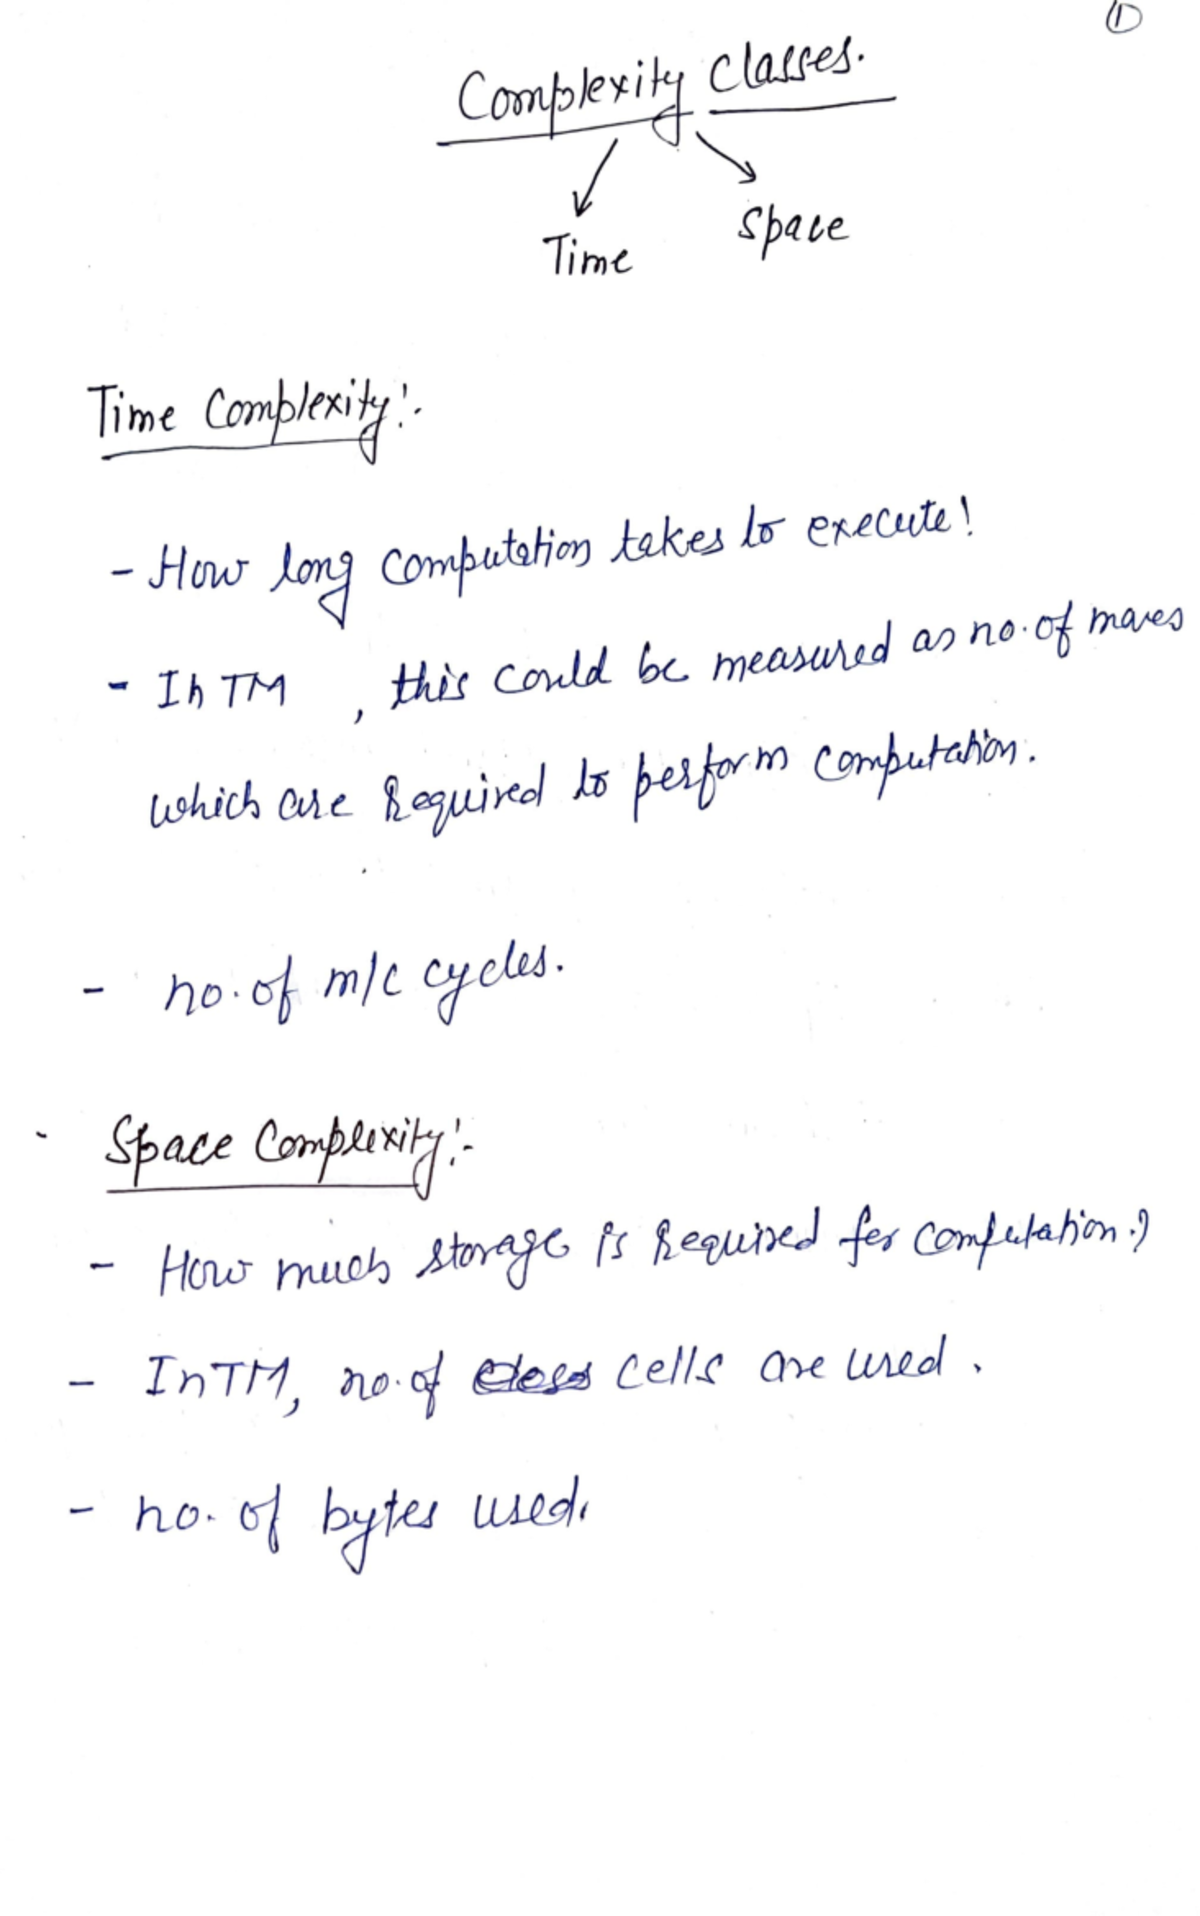 ①
Complexity Classes.
Time
Space
Time Complexity:-
- How long computation takes to execute!
- In TM , this could be measured as no. of moves
which are Required to perform computation.
- no. of m/c cycles.
Space Complexity:-
- How much storage is Required for computation?
- In TM, no. of cells are used.
- no. of bytes used.